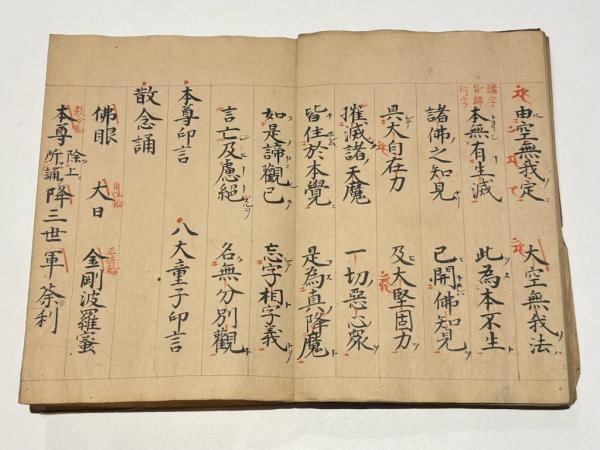 由空無我定 大空無我法
本無有生滅 此為本不生
諸佛之知見 已開佛知見
具大自在力 及大堅固力
摧滅諸天魔 一切惡心衆
皆住於本覺 是為真降魔
如是諦觀已 忘字相字義
言亡及慮絕 名無分別觀
本尊印言 八大童子印言
散念誦
佛眼 大日 金剛波羅蜜
本尊 除上所誦 降三世 軍荼利